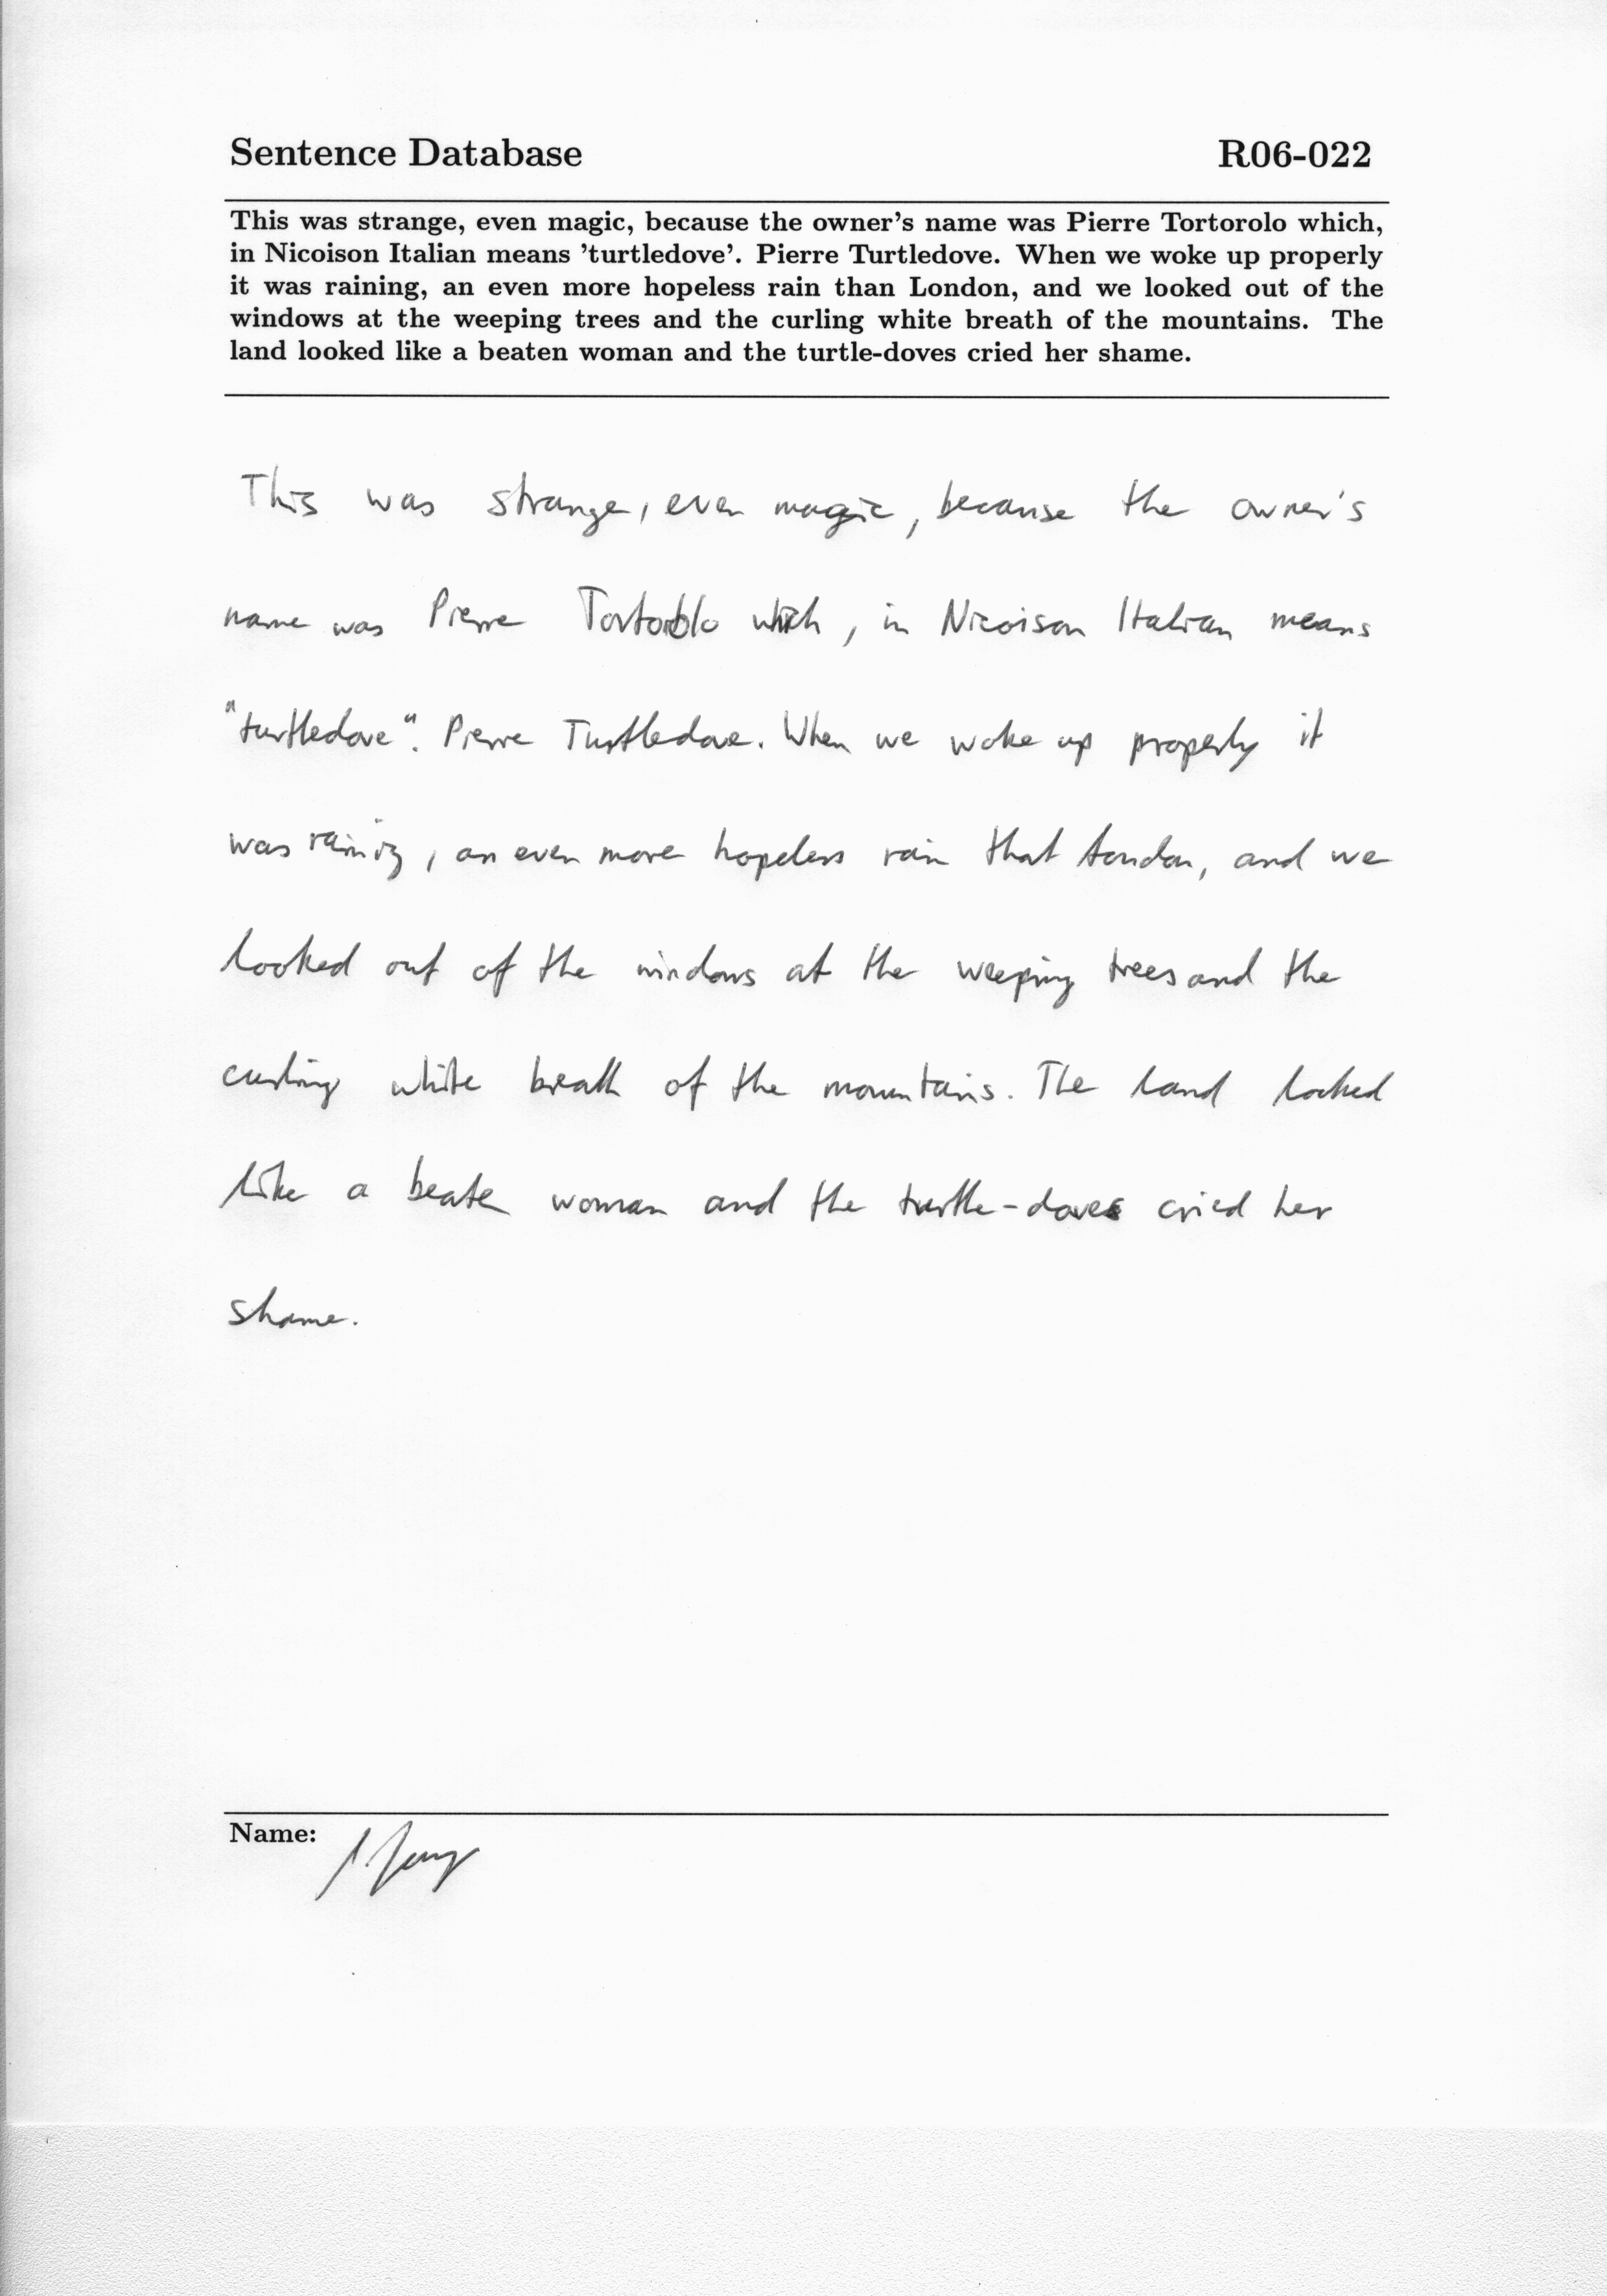 Sentence Database R06-022
This was strange, even magic, because the owner's name was Pierre Tortorolo which,
in Nicoison Italian means 'turtledove'. Pierre Turtledove. When we woke up properly
it was raining, an even more hopeless rain than London, and we looked out of the
windows at the weeping trees and the curling white breath of the mountains. The
land looked like a beaten woman and the turtle-doves cried her shame.
This was strange, even magic, because the owner's
name was Pierre Tortorolo which, in Nicoison Italian means
"turtledove". Pierre Turtledove. When we woke up properly it
was raining, an even more hopeless rain that London, and we
looked out of the windows at the weeping trees and the
curling white breath of the mountains. The land looked
like a beaten woman and the turtle-doves cried her
shame.
Name: